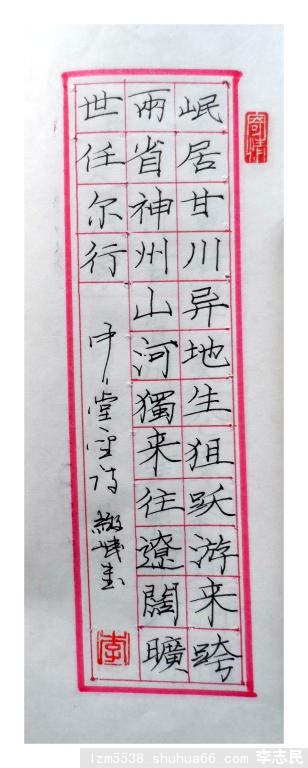 岷居甘川异地生狙跃游来跨
兩省神州山河獨来往遼闊曠
世任尔行
中堂
李
lzm5538.shuhua66.com 李志民